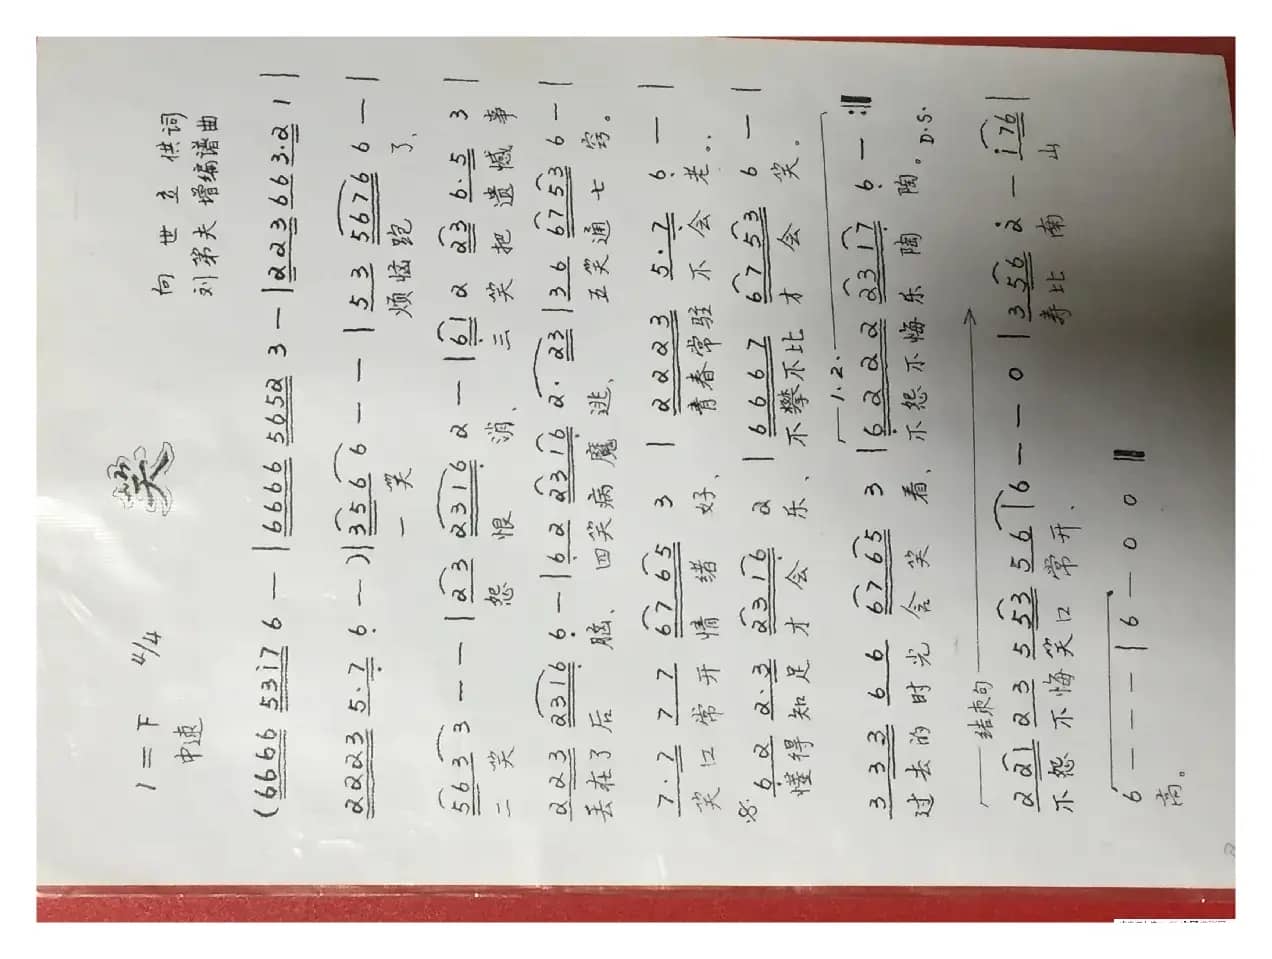 笑
1=F 4/4
中速
向世立供词
刘第夫增编谱曲
(6666 53i7 6 — | 6666 5652 3 — | 223 663·2 1 |
2223 5·7 6 —) | 3566 — — | 53 5676 6 — |
一笑 烦恼跑了、
563 3 — — | 23 2316 2 — | 61 2 23 6·5 3 |
二笑 怨恨消、 三笑把遗憾事
223 2316 6 — | 62 2316 2·23 | 36 6753 6 — |
丢在了后脑、 四笑病魔逃、 五笑通七窍。
7·7 77 6765 3 | 2223 5·7 6 — |
笑口常开情绪好、 青春常驻不会老。
62 2·3 2316 2 | 6667 6753 6 — |
懂得知足才会乐、 不攀不比才会笑。
1.2.
333 66 6765 3 | 6222 2317 6 — :‖
过去的时光含笑看、 不怨不悔乐陶陶。 D.S.
结束句
221 23 553 56 | 6 — — 0 | 356 2 — i76 |
不怨不悔笑口常开、 寿比南山
6 — — — | 6 — 0 0 ‖
高。